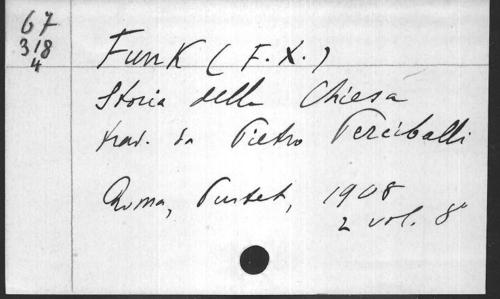 67
318
4
Funk (F. X.)
Storia della Chiesa
trad. da Pietro Perciballi
Roma, Pustet, 1908
2 vol. 8°